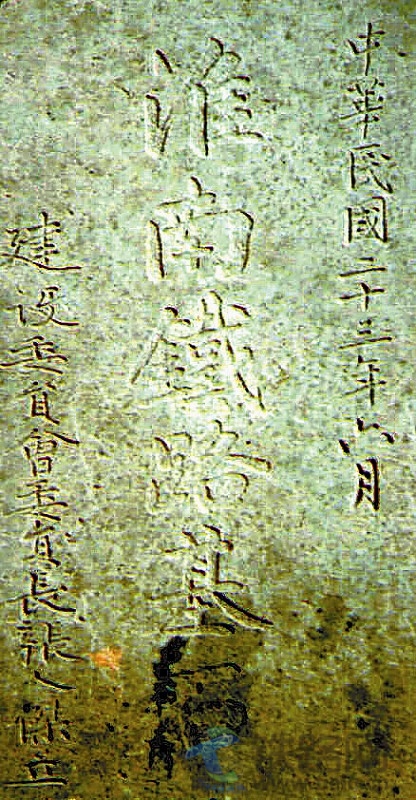 中華民國二十三年六月
淮南鐵路基
建設委員會委員長張人傑立